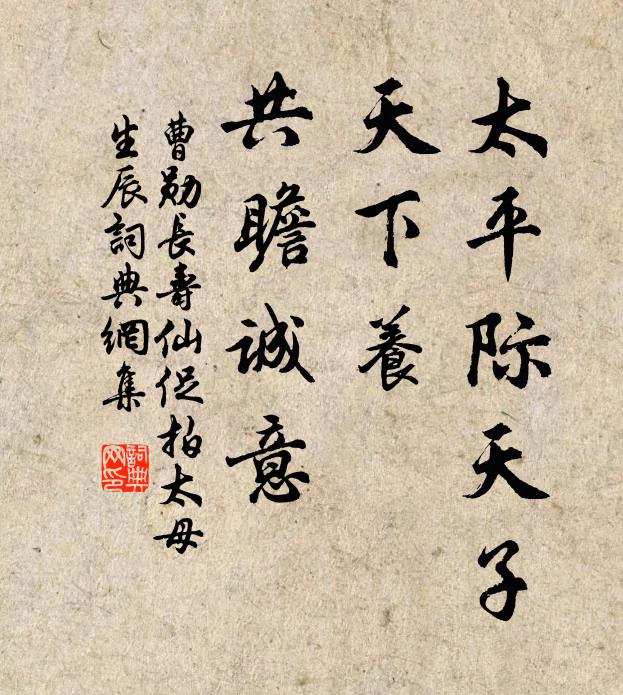 太平际天子
天下養
共瞻誠意
曹勛長壽仙促拍太母
生辰詞典網集
詞典网印